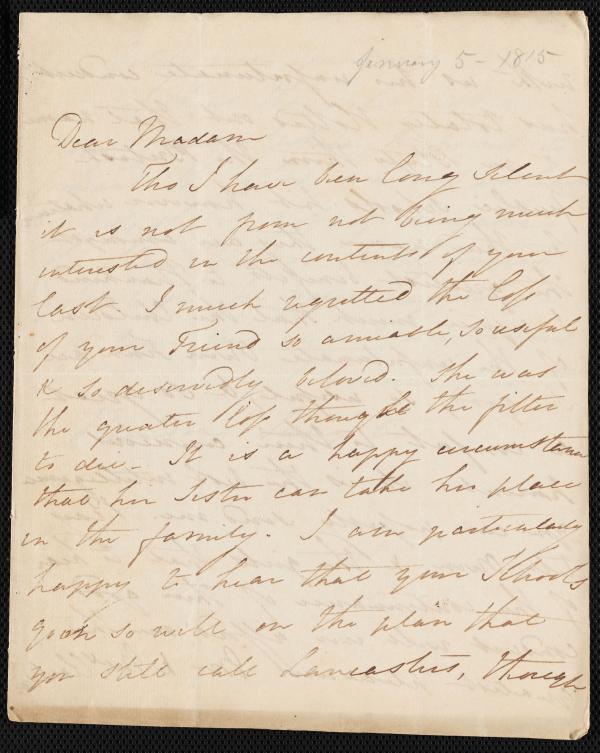 January 5 - 1815
Dear Madam
Tho I have been long silent
it is not from not being much
interested in the contents of your
last. I much regretted the loss
of your Friend so amiable, so useful
& so deservedly beloved. She was
the greater loss though the fitter
to die - It is a happy circumstance
that her Sister can take her place
in the family. I am particularly
happy to hear that your Schools
go on so well on the plan that
you still call Lancasters, though